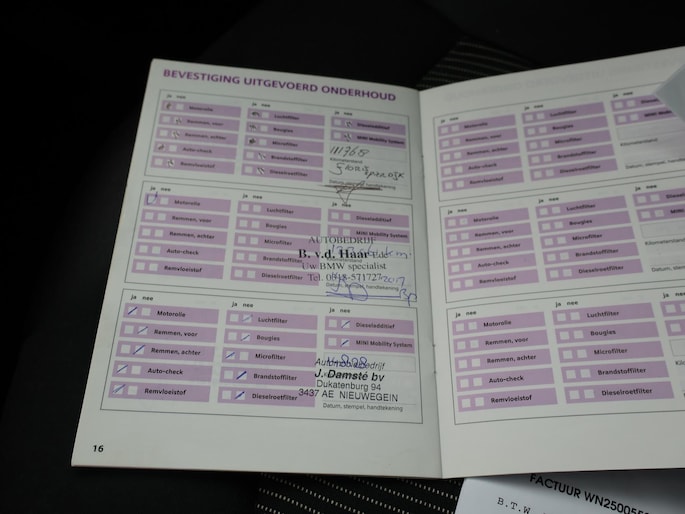 BEVESTIGING UITGEVOERD ONDERHOUD
ja nee
Motorolie
Remmen, voor
Remmen, achter
Auto-check
Remvloeistof
ja nee
Luchtfilter
Bougies
Microfilter
Brandstoffilter
Dieselroetfilter
ja nee
Dieseladditief
MINI Mobility System
111768
Kilometerstand
Datum, stempel, handtekening
ja nee
Motorolie
Remmen, voor
Remmen, achter
Auto-check
Remvloeistof
ja nee
Luchtfilter
Bougies
Microfilter
Brandstoffilter
Dieselroetfilter
ja nee
Dieseladditief
MINI Mobility System
AUTOBEDRIJF
B. v.d. Haar
Uw BMW specialist
Datum, stempel, handtekening
ja nee
Motorolie
Remmen, voor
Remmen, achter
Auto-check
Remvloeistof
ja nee
Luchtfilter
Bougies
Microfilter
Brandstoffilter
Dieselroetfilter
ja nee
Dieseladditief
MINI Mobility System
Automobielbedrijf
J. Damsté bv
Dukatenburg 94
3437 AE NIEUWEGEIN
Datum, stempel, handtekening
16
ja nee
Motorolie
Remmen, voor
Remmen, achter
Auto-check
Remvloeistof
ja nee
Luchtfilter
Bougies
Microfilter
Brandstoffilter
Dieselroetfilter
ja nee
MINI
Kilometerstand
Datum, stempel, hand
ja nee
Motorolie
Remmen, voor
Remmen, achter
Auto-check
Remvloeistof
ja nee
Luchtfilter
Bougies
Microfilter
Brandstoffilter
Dieselroetfilter
ja nee
MINI
Kilometerstand
Datum, stempel,
ja nee
Motorolie
Remmen, voor
Remmen, achter
Auto-check
Remvloeistof
ja nee
Luchtfilter
Bougies
Microfilter
Brandstoffilter
Dieselroetfilter
ja
FACTUUR
B.T.W.